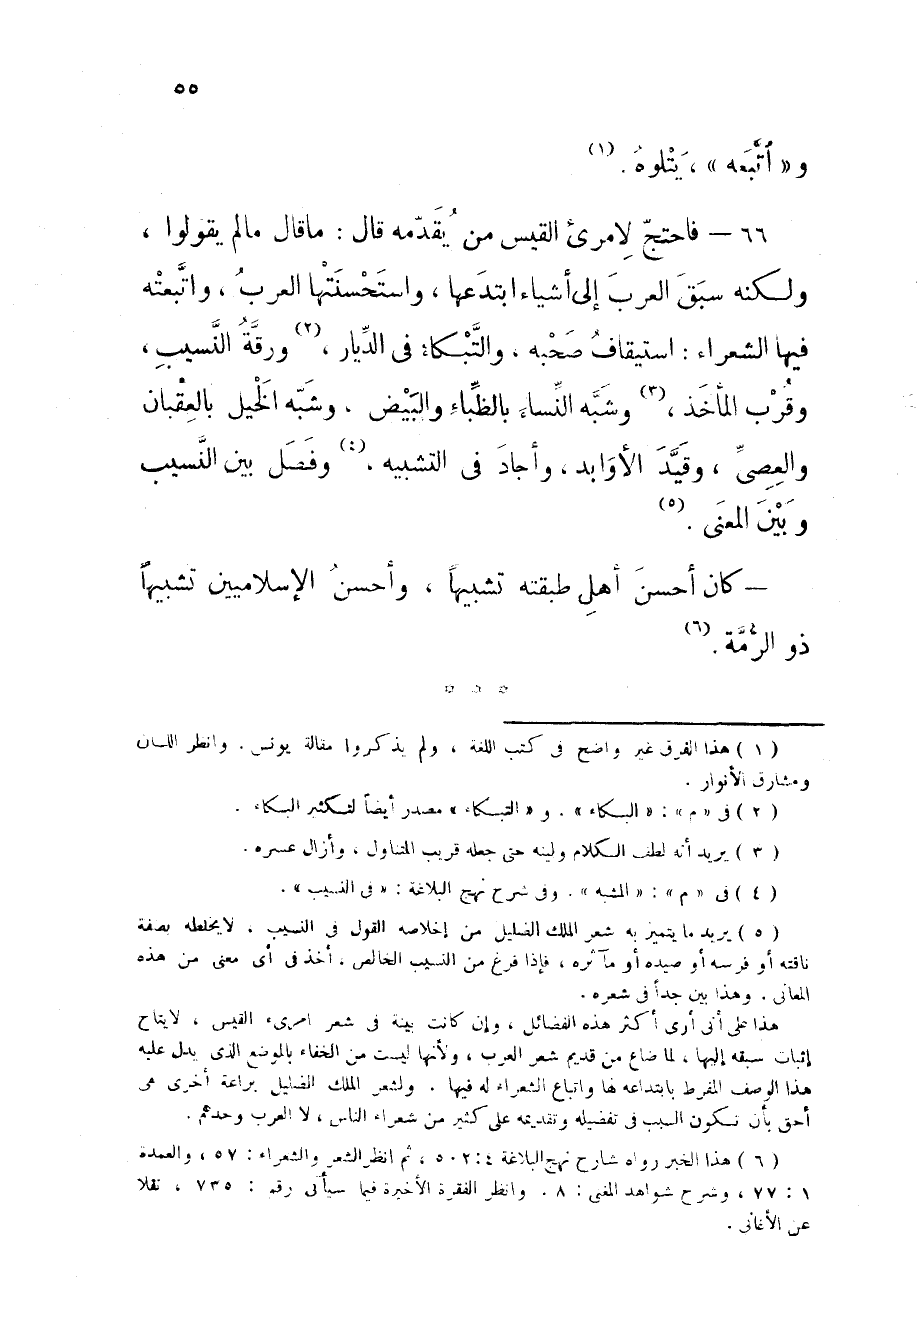 ٥٥
و « ٱتَّبَعه » ، يَتْلوهُ . (١)
٦٦ – فاحتجّ لِامرئ القيس من يُقَدّمه قال : ماقال مالم يقولوا ،
ولكنه سبَقَ العربَ إلى أشياء ابتدَعها ، واستَحْسنَتْها العربُ ، واتَّبعتْه
فيها الشعراء : استيقافُ صَحْبه ، والتَّبْكاء فى الدِّيار ، (٢) ورقَّةُ النَّسيبِ ،
وقُرْب المأخَذ ، (٣) وشَبَّه النِّساء بالظِّباءِ والبَيْض . وشَبّه الخيل بالعِقْبان
والعِصِىِّ ، وقَيَّدَ الأَوَابد ، وأجادَ فى التشبيه . (٤) وفَصَل بين النَّسيب
وبَيْنَ المعنَى . (٥)
– كان أحسنَ أهلِ طبقته تشبيهاً ، وأحسنُ الإسلاميين تشبيهاً
ذو الرُّمَّة . (٦)
( ١ ) هذا الفرق غير واضح فى كتب اللغة ، ولم يذكروا مقالة يونس . وانظر اللسان
ومشارق الأنوار .
( ٢ ) فى « م » : « البكاء » . و « التبكاء » مصدر أيضاً لتكثير البكاء .
( ٣ ) يريد أنه لطف الكلام ولينه حتى جعله قريب المتناول ، وأزال عسره .
( ٤ ) فى « م » : « المشبه » . وفى شرح نهج البلاغة : « فى النسيب » .
( ٥ ) يريد ما يتميز به شعر الملك الضليل من إخلاصه القول فى النسيب . لايخلطه بصفة
ناقته أو فرسه أو صيده أو مآثره ، فإذا فرغ من النسيب الخالص ، أخذ فى أى معنى من هذه
المعانى . وهذا بين جداً فى شعره .
هذا على أنى أرى أكثر هذه الفضائل ، وإن كانت بينة فى شعر امرىء القيس ، لايتاح
إثبات سبقه إليها ، لما ضاع من قديم شعر العرب ، ولأنها ليست من الخفاء بالموضع الذى يدل عليه
هذا الوصف المفرط بابتداعه لها واتباع الشعراء له فيها . ولشعر الملك الضليل براعة أخرى هى
أحق بأن تكون السبب فى تفضيله وتقديمه على كثير من شعراء الناس ، لا العرب وحدهم .
( ٦ ) هذا الخبر رواه شارح نهج البلاغة ٤ : ٥٠٢ ، ثم انظر الشعر والشعراء : ٥٧ ، والعمدة
١ : ٧٧ ، وشرح شواهد المغنى : ٨ . وانظر الفقرة الأخيرة فيما سيأتى رقم : ٧٣٥ ، نقلا
عن الأغانى .